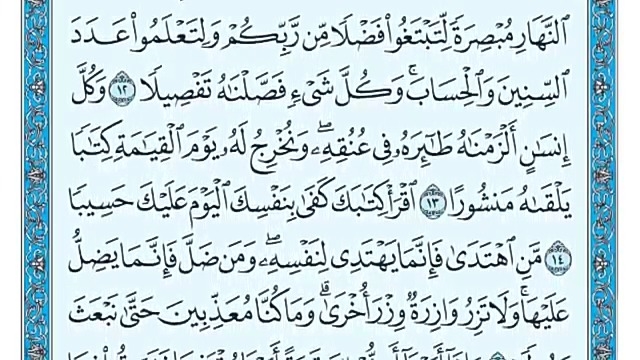 ٱلنَّهَارِ مُبْصِرَةً لِّتَبْتَغُوا۟ فَضْلًا مِّن رَّبِّكُمْ وَلِتَعْلَمُوا۟ عَدَدَ
ٱلسِّنِينَ وَٱلْحِسَابَ ۚ وَكُلَّ شَىْءٍ فَصَّلْنَٰهُ تَفْصِيلًا ١٢ وَكُلَّ
إِنسَٰنٍ أَلْزَمْنَٰهُ طَٰٓئِرَهُۥ فِى عُنُقِهِۦ ۖ وَنُخْرِجُ لَهُۥ يَوْمَ ٱلْقِيَٰمَةِ كِتَٰبًا
يَلْقَىٰهُ مَنشُورًا ١٣ ٱقْرَأْ كِتَٰبَكَ كَفَىٰ بِنَفْسِكَ ٱلْيَوْمَ عَلَيْكَ حَسِيبًا
١٤ مَّنِ ٱهْتَدَىٰ فَإِنَّمَا يَهْتَدِى لِنَفْسِهِۦ ۖ وَمَن ضَلَّ فَإِنَّمَا يَضِلُّ
عَلَيْهَا ۚ وَلَا تَزِرُ وَازِرَةٌ وِزْرَ أُخْرَىٰ ۗ وَمَا كُنَّا مُعَذِّبِينَ حَتَّىٰ نَبْعَثَ